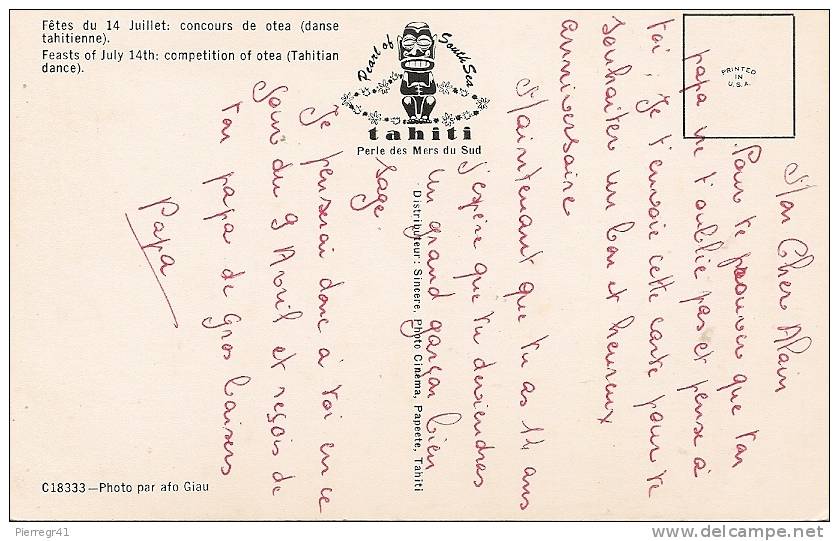 Fêtes du 14 Juillet: concours de otea (danse
tahitienne).
Feasts of July 14th: competition of otea (Tahitian
dance).
Pearl of South Sea
tahiti
Perle des Mers du Sud
PRINTED
IN
U.S.A.
Mon Cher Alain
Pour te prouver que ton
papa ne t'oublie pas et pense à
toi, Je t'envoie cette carte pour te
souhaiter un bon et heureux
anniversaire
Maintenant que tu as 14 ans
j'espère que tu deviendras
un grand garçon bien
sage.
Je penserai donc à toi en ce
jour du 9 Avril et reçois de
ton papa de Gros baisers
Papa
Distributeur: Sincere, Photo Cinéma, Papeete, Tahiti
C18333—Photo par afo Giau
Pierregr41
delcampe.net